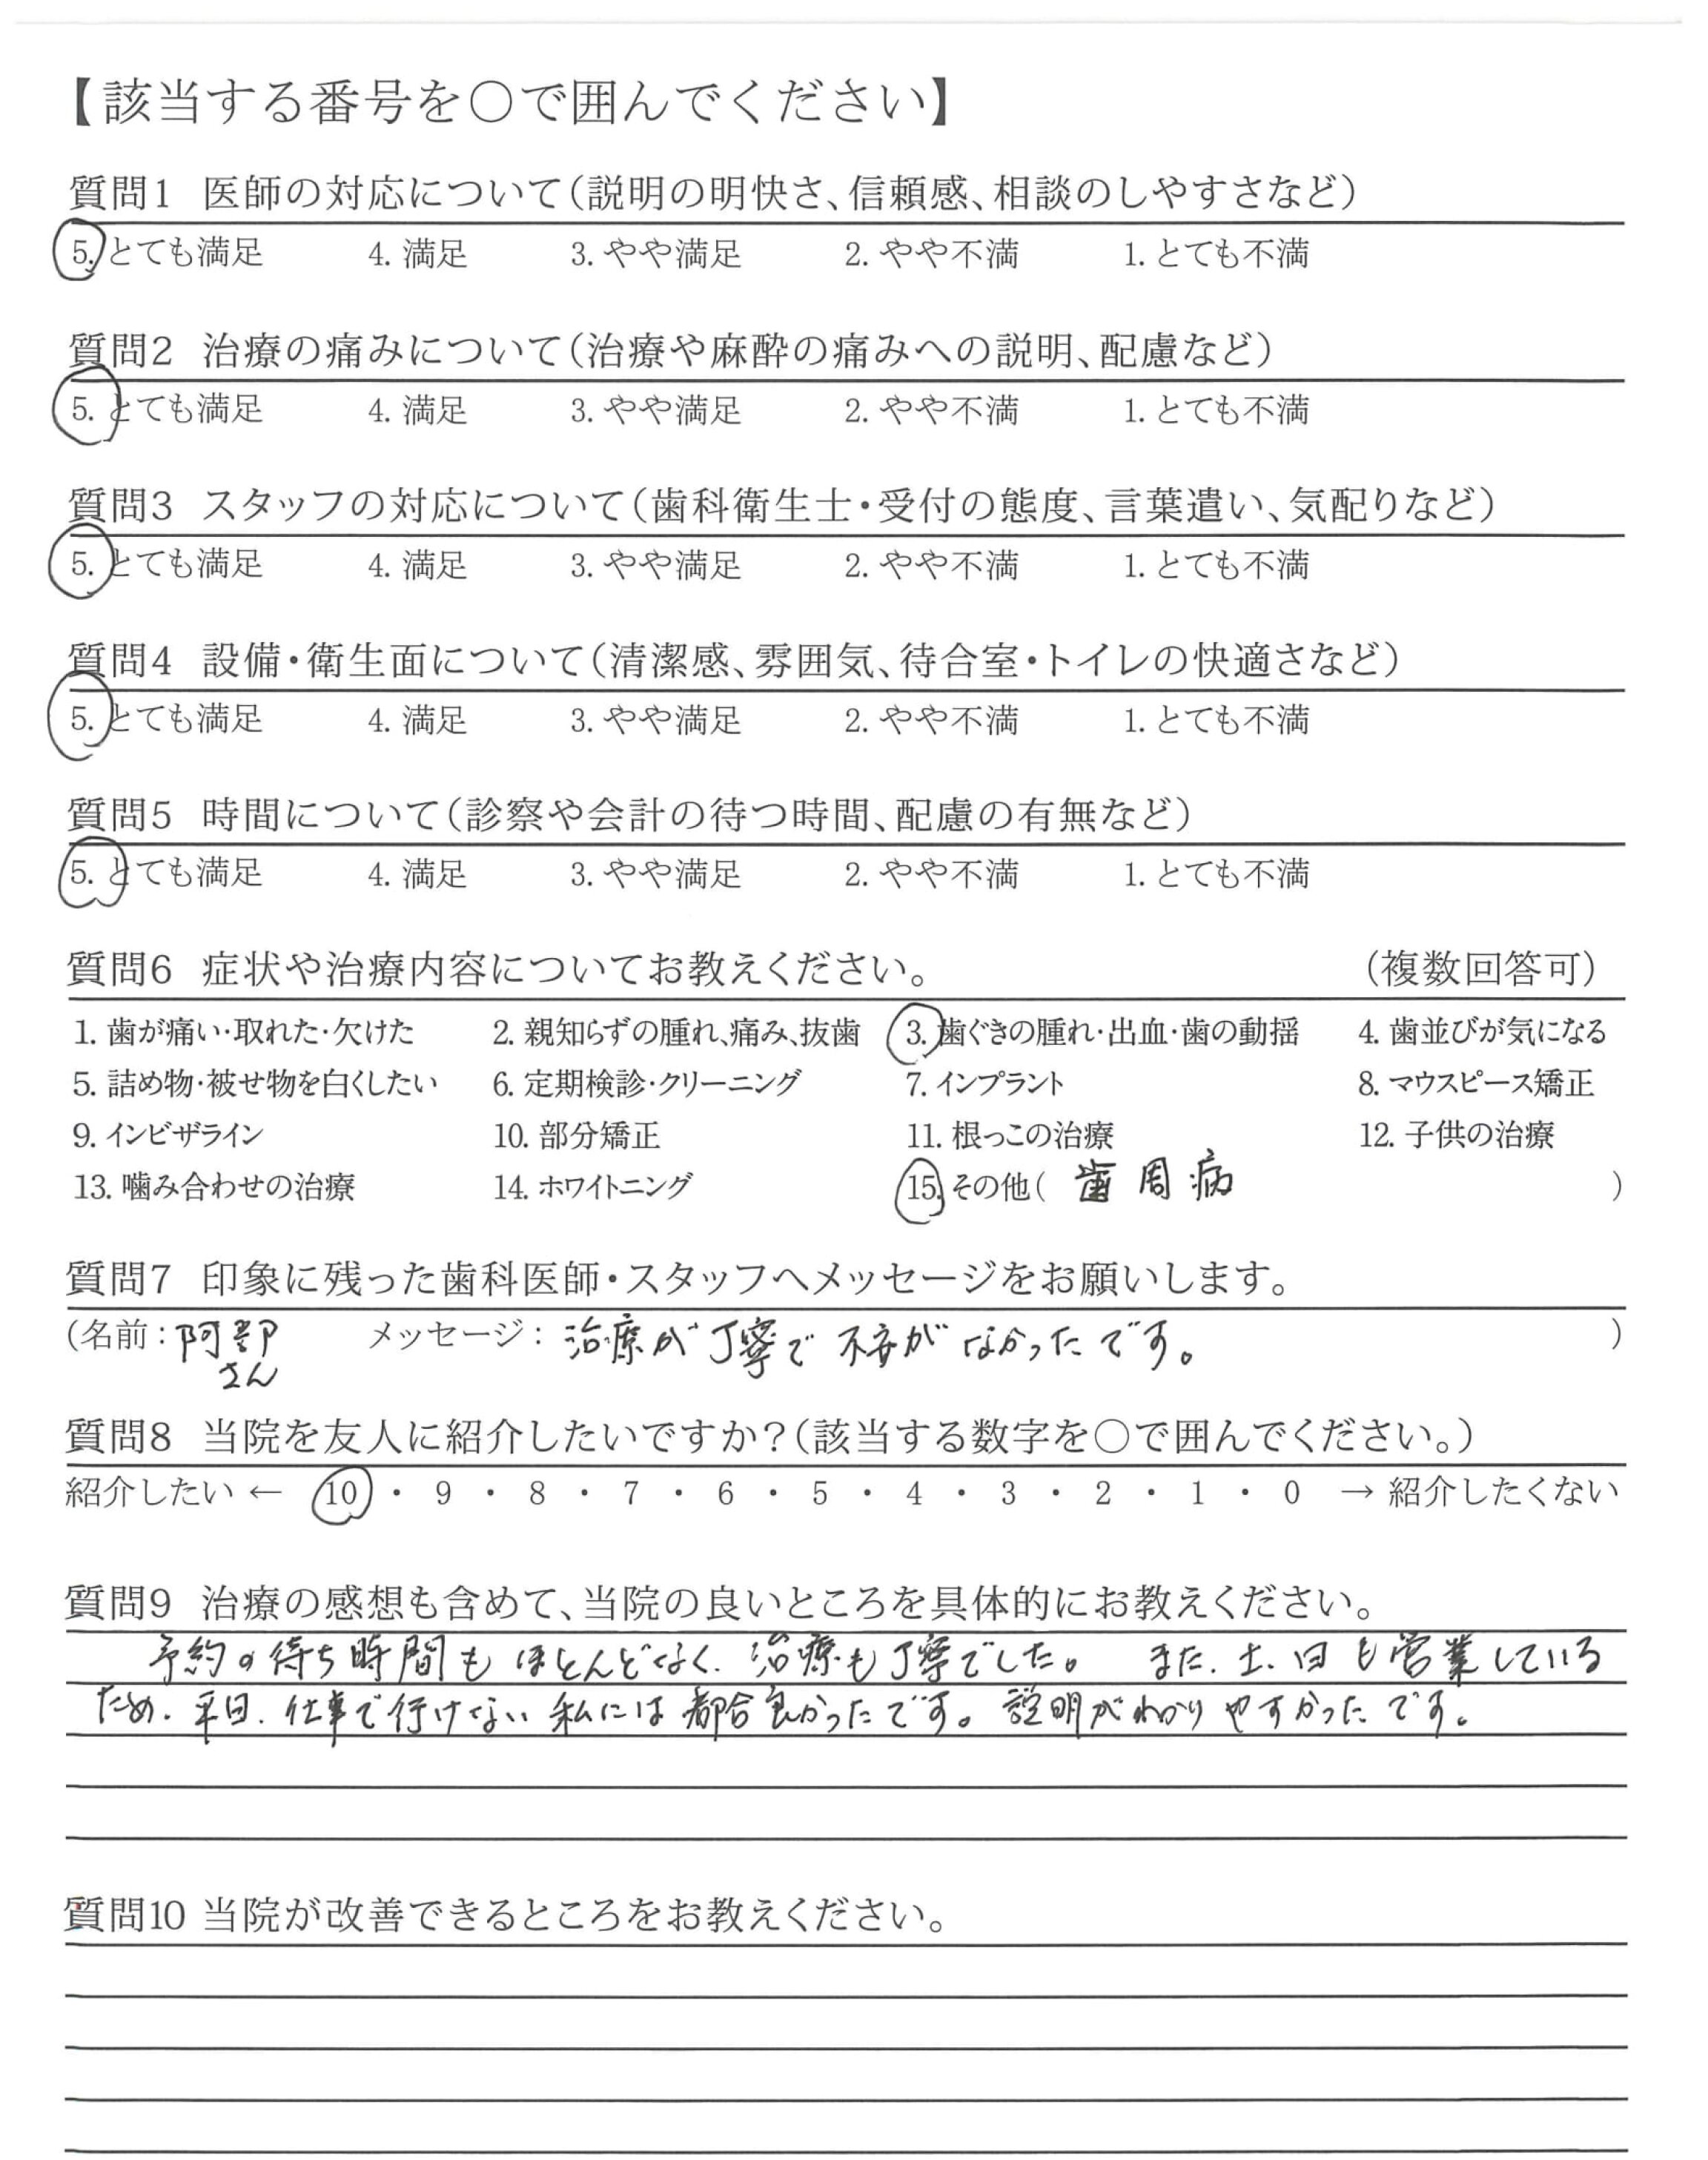 【該当する番号を○で囲んでください】
質問1 医師の対応について（説明の明快さ、信頼感、相談のしやすさなど）
5. とても満足 4. 満足 3. やや満足 2. やや不満 1. とても不満
質問2 治療の痛みについて（治療や麻酔の痛みへの説明、配慮など）
5. とても満足 4. 満足 3. やや満足 2. やや不満 1. とても不満
質問3 スタッフの対応について（歯科衛生士・受付の態度、言葉遣い、気配りなど）
5. とても満足 4. 満足 3. やや満足 2. やや不満 1. とても不満
質問4 設備・衛生面について（清潔感、雰囲気、待合室・トイレの快適さなど）
5. とても満足 4. 満足 3. やや満足 2. やや不満 1. とても不満
質問5 時間について（診察や会計の待つ時間、配慮の有無など）
5. とても満足 4. 満足 3. やや満足 2. やや不満 1. とても不満
質問6 症状や治療内容についてお教えください。 （複数回答可）
1. 歯が痛い・取れた・欠けた 2. 親知らずの腫れ、痛み、抜歯 3. 歯ぐきの腫れ・出血・歯の動揺 4. 歯並びが気になる
5. 詰め物・被せ物を白くしたい 6. 定期検診・クリーニング 7. インプラント 8. マウスピース矯正
9. インビザライン 10. 部分矯正 11. 根っこの治療 12. 子供の治療
13. 噛み合わせの治療 14. ホワイトニング 15. その他（ 歯周病 ）
質問7 印象に残った歯科医師・スタッフへメッセージをお願いします。
（名前：阿部さん メッセージ：治療が丁寧で不安がなかったです。 ）
質問8 当院を友人に紹介したいですか？（該当する数字を○で囲んでください。）
紹介したい ← 10 ・ 9 ・ 8 ・ 7 ・ 6 ・ 5 ・ 4 ・ 3 ・ 2 ・ 1 ・ 0 → 紹介したくない
質問9 治療の感想も含めて、当院の良いところを具体的にお教えください。
予約の待ち時間もほとんどなく、治療も丁寧でした。 また、土、日も営業している
ため、平日、仕事で行けない私には都合良かったです。説明がわかりやすかったです。
質問10 当院が改善できるところをお教えください。